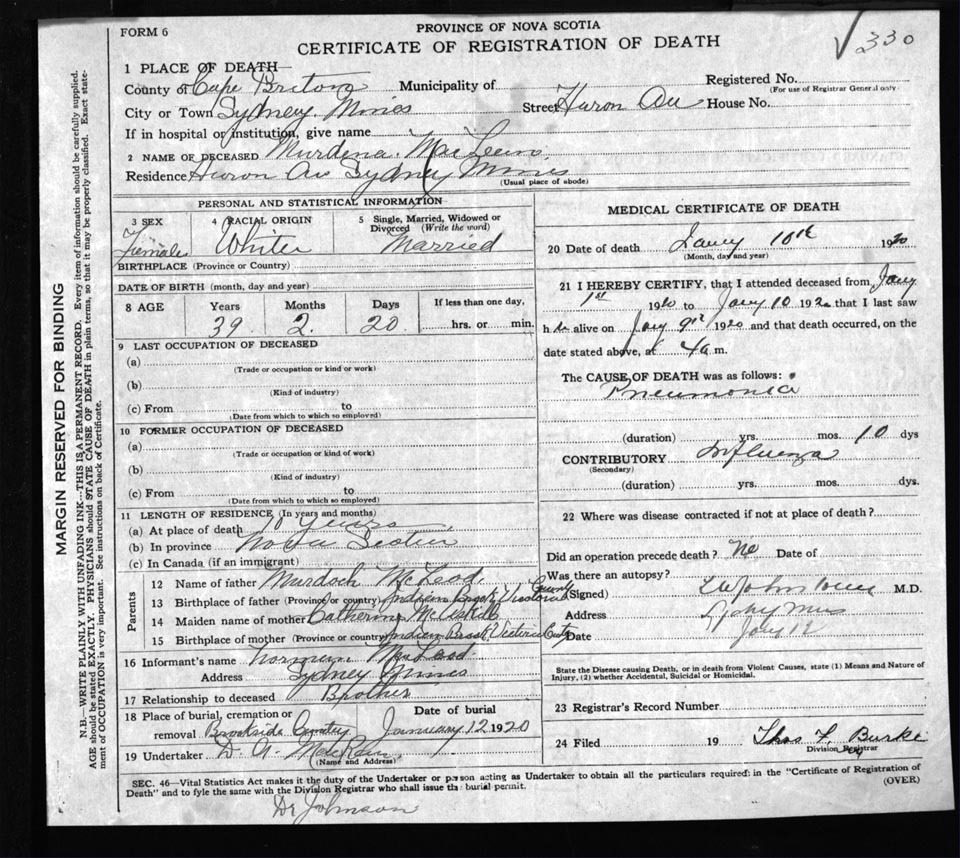 FORM 6
PROVINCE OF NOVA SCOTIA
CERTIFICATE OF REGISTRATION OF DEATH
√330
1 PLACE OF DEATH
County of Cape Briton Municipality of Registered No.
(For use of Registrar General only)
City or Town Sydney Mines Street Huron Av House No.
If in hospital or institution, give name
2 NAME OF DECEASED Murdena MacLean
Residence Huron Av Sydney Mines
(Usual place of abode)
PERSONAL AND STATISTICAL INFORMATION
3 SEX
Female
4 RACIAL ORIGIN
White
5 Single, Married, Widowed or Divorced (Write the word)
Married
BIRTHPLACE (Province or Country)
DATE OF BIRTH (month, day and year)
8 AGE Years Months Days If less than one day,
39 2 20 hrs. or min.
9 LAST OCCUPATION OF DECEASED
(a)
(Trade or occupation or kind or work)
(b)
(Kind of industry)
(c) From to
(Date from which to which so employed)
10 FORMER OCCUPATION OF DECEASED
(a)
(Trade or occupation or kind of work)
(b)
(Kind of industry)
(c) From to
(Date from which to which so employed)
11 LENGTH OF RESIDENCE (In years and months)
(a) At place of death 10 years
(b) In province Nova Scotia
(c) In Canada (if an immigrant)
Parents
12 Name of father Murdoch McLeod
13 Birthplace of father (Province or country) Indian Brook Victoria County
14 Maiden name of mother Catherine McAskill
15 Birthplace of mother (Province or country) Indian Brook Victoria County
16 Informant's name Norman McLeod
Address Sydney Mines
17 Relationship to deceased Brother
18 Place of burial, cremation or removal Brookside Cemetery
Date of burial January 12 1920
19 Undertaker D. A.
(Name and Address)
MEDICAL CERTIFICATE OF DEATH
20 Date of death Janry 10th 1920
(Month, day and year)
21 I HEREBY CERTIFY, that I attended deceased from Jany
1st 1920 to Jany 10 1920 that I last saw
h er alive on Jany 9th 1920 and that death occurred, on the
date stated above, at 4 a m.
The CAUSE OF DEATH was as follows:
Pneumonia
(duration) yrs. mos. 10 dys
CONTRIBUTORY Influenza
(Secondary)
(duration) yrs. mos. dys.
22 Where was disease contracted if not at place of death?
Did an operation precede death? No Date of
Was there an autopsy?
(Signed) M.D.
Address Sydney Mines
Date Jany 12
State the Disease causing Death, or in death from Violent Causes, state (1) Means and Nature of
Injury, (2) whether Accidental, Suicidal or Homicidal.
23 Registrar's Record Number
24 Filed 19 Thos L. Burke
Division Registrar
SEC. 46—Vital Statistics Act makes it the duty of the Undertaker or person acting as Undertaker to obtain all the particulars required in the "Certificate of Registration of
Death" and to fyle the same with the Division Registrar who shall issue the burial permit.
(OVER)
Dr Johnson
MARGIN RESERVED FOR BINDING
N.B.—WRITE PLAINLY WITH UNFADING INK—THIS IS A PERMANENT RECORD. Every item of information should be carefully supplied.
AGE should be stated EXACTLY. PHYSICIANS should STATE CAUSE OF DEATH in plain terms, so that it may be properly classified. Exact state-
ment of OCCUPATION is very important. See instructions on back of Certificate.